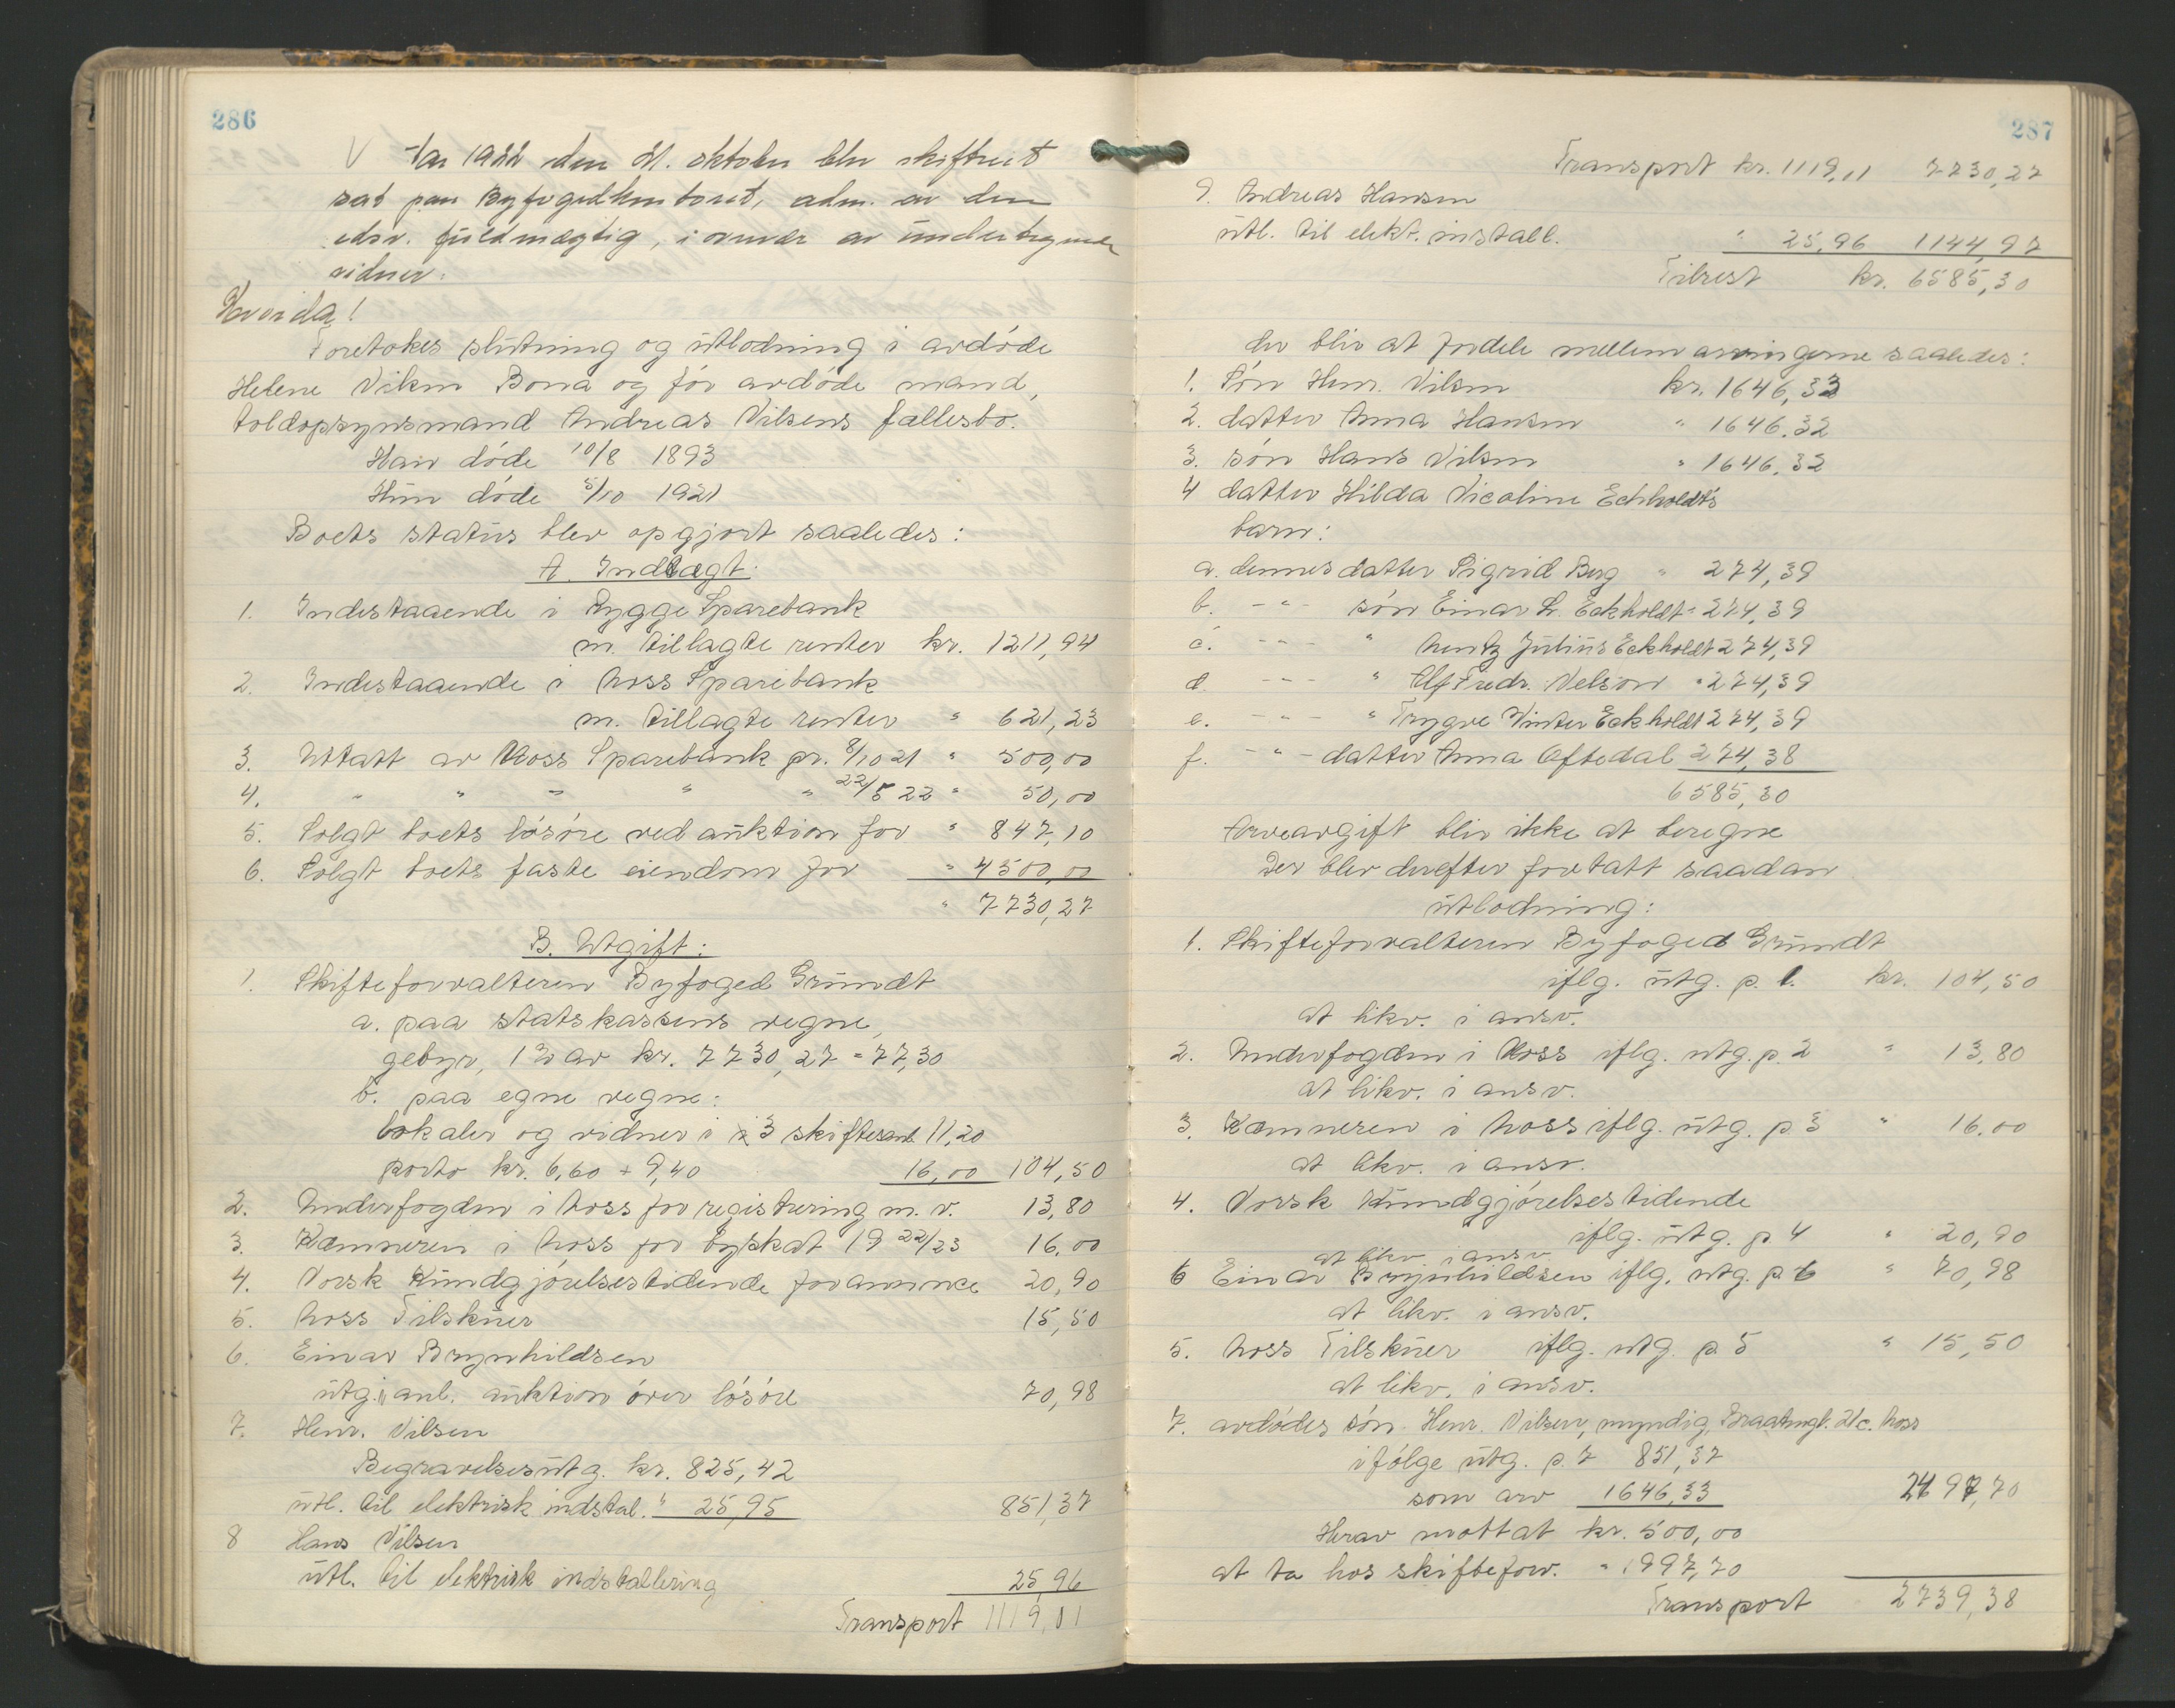 286
V Aar 1922 den 21. oktober blev skifteret
sat paa Byfogedkontoret, adm. av den
edsv. fuldmægtig, i overvær av undertegnede
vidner.
Hvorda!
Foretokes slutning og utlodning i avdøde
Helene Nilsen Bona og før avdøde mand,
toldopsynsmand Andreas Nilsens fællesbo.
Han døde 10/8 1893
Hun døde 5/10 1921
Boets status blev opgjort saaledes:
A. Indtægt.
1. Indestaaende i Rygge Sparebank
m. tillagte renter kr. 1211,94
2. Indestaaende i Moss Sparebank
m. tillagte renter " 621,23
3. Uttatt av Moss Sparebank pr. 8/10 21 " 500,00
4. " " " " " 22/5 22 " 50,00
5. Solgt boets løsøre ved auktion for " 847,10
6. Solgt boets faste eiendom for " 4500,00
" 7730,27
B. Utgift:
1. Skifteforvalteren Byfoged Grundt
a. paa statskassens vegne,
gebyr, 1 % av kr. 7730,27 = 77,30
b. paa egne vegne:
lokaler og vidner i 3 skiftesaml. 11,20
porto kr. 6,60 + 9,40 16,00 104,50
2. Underfogden i Moss for registrering m. v. 13,80
3. Kæmneren i Moss for byskat 19 22/23 16,00
4. Norsk Kundgjørelsestidende for annonce 20,90
5. Moss Tilskuer 15,50
6. Einar Brynhildsen
utg. i anl. auktion over løsøre 70,98
7. Henr. Nilsen
Begravelsesutg. kr. 825,42
utl. til elektrisk indstal. " 25,95 851,37
8 Hans Nilsen
utl. til elektrisk indstallering 25,96
Transport 1119,01
287
Transport kr. 1119,01 7730,27
9. Andreas Hansen
utl. til elekt. install. " 25,96 1144,97
Tilrest kr. 6585,30
der blir at fordele mellem arvingerne saaledes:
1. Søn Henr. Nilsen kr. 1646,33
2. datter Anna Hansen " 1646,32
3. søn Hans Nilsen " 1646,32
4 datter Hilda Nicoline Eckholdt's
barn:
a. dennes datter Sigrid Berg " 274,39
b. - " - søn Einar L. Eckholdt " 274,39
c. - " - " Arentz Julius Eckholdt 274,39
d. - " - " Alf Fredr. Nelson " 274,39
e. - " - " Trygve Winter Eckholdt 274,39
f. - " - datter Anna Oftedal 274,38
6585,30
Arveavgift blir ikke at beregne
Der blev derefter foretatt saadan
utlodning:
1. Skifteforvalteren Byfoged Grundt
iflg. utg. p. 1. kr. 104,50
at likv. i ansv.
2. Underfogden i Moss iflg. utg. p. 2 " 13,80
at likv. i ansv.
3. Kæmneren i Moss iflg. utg. p. 3 " 16,00
at likv. i ansv.
4. Norsk Kundgjørelsestidende
iflg. utg. p 4 " 20,90
at likv. i ansv.
6 Einar Brynhildsen iflg. utg. p 6 " 70,98
at likv. i ansv.
5. Moss Tilskuer iflg. utg. p. 5 " 15,50
at likv. i ansv.
7. avdødes søn Henr. Nilsen, myndig, 21c. Moss
ifølge utg. p. 7 851,37
som arv 1646,33 2497,70
Herav mottat kr. 500,00
at ta hos skifteforv. " 1997,70
Transport 2739,38